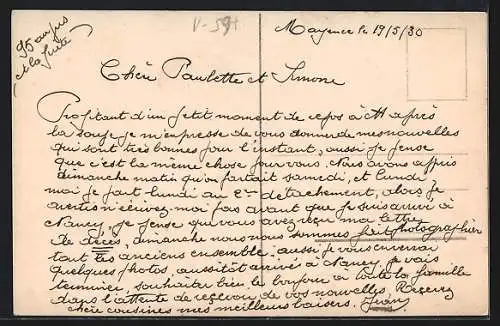 V-59
Mayence le 19/5/30
95 au jus
et la fuite
Chère Paulette et Simone
Profitant d'un petit moment de repos à 11 h après
la soupe je m'empresse de vous donner de mes nouvelles
qui sont très bonnes pour l'instant, aussi je pense
que c'est la même chose pour vous. Nous avons appris
dimanche matin qu'on partait samedi, et lundi
moi je part lundi au 2me détachement, alors je
avertis n'écrivez-moi pas avant que je suis arrivé à
Nancy, je pense que vous avez reçu ma lettre
de décès, dimanche nous nous sommes fait photographier
tout les anciens ensemble, aussi je vous enverrai
quelques photos, aussitôt arrivé à Nancy, je vais
terminer, souhaiter bien le bonjour à toute la famille
dans l'attente de recevoir de vos nouvelles. Recevez
chère cousines mes meilleurs baisers. Jean